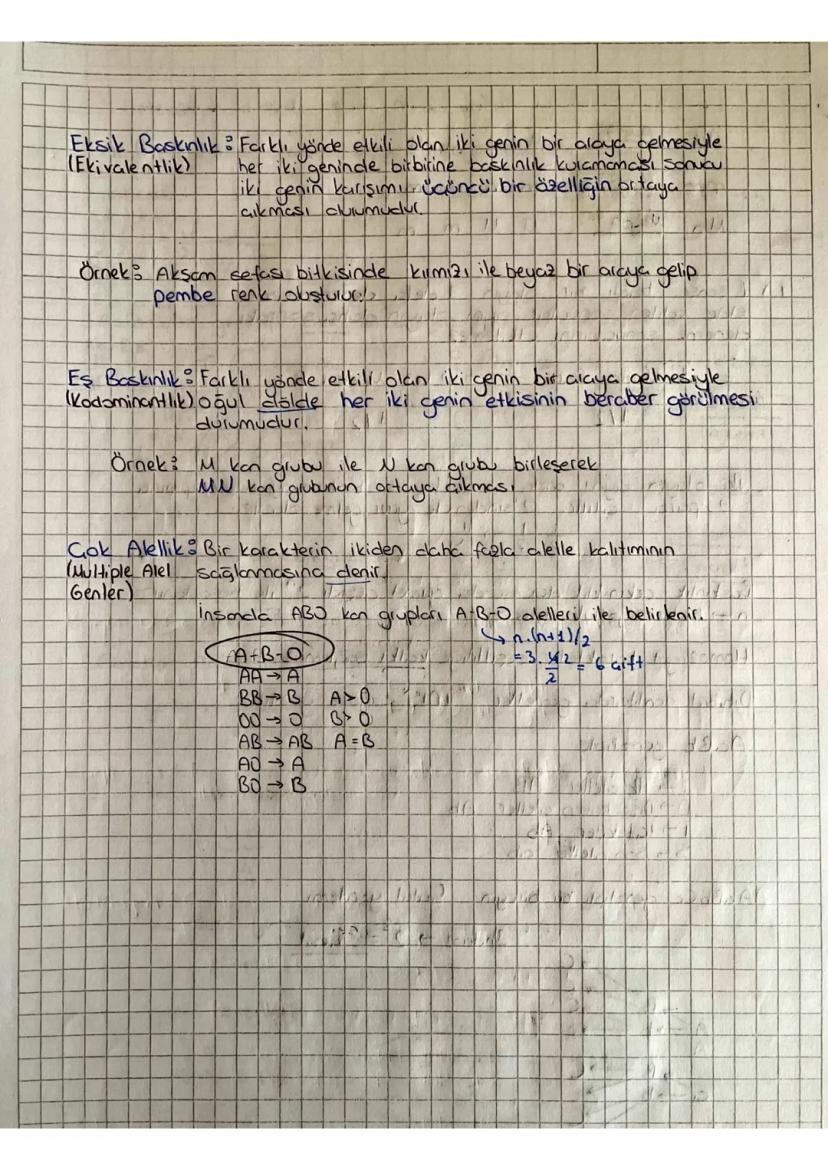 Eksik Baskınlık: Farklı yönde etkili olan iki genin bir araya gelmesiyle
(Ekivalentlik) her iki geninde birbirine baskınlık kuramaması sonucu
iki genin karışımı, üçüncü bir özelliğin ortaya
çıkması durumudur.
Örnek: Akşam sefası bitkisinde kırmızı ile beyaz bir araya gelip
pembe renk oluşturur.
Eş Baskınlık: Farklı yönde etkili olan iki genin bir araya gelmesiyle
(Kodominantlık) oğul dölde her iki genin etkisinin beraber görülmesi
durumudur.
Örnek: M kan grubu ile N kan grubu birleşerek
MN kan grubunun ortaya çıkması
Çok Alellik: Bir karakterin ikiden daha fazla alelle kalıtımının
(Multiple Alel sağlanmasına denir.
Genler)
İnsanda ABO kan grupları A-B-O alelleri ile belirlenir.
↳ n.(n+1)/2
A-B-O = 3.4/2 = 6 çift
AA → A
BB → B A>O
OO → O B>O
AB → AB A=B
AO → A
BO → B